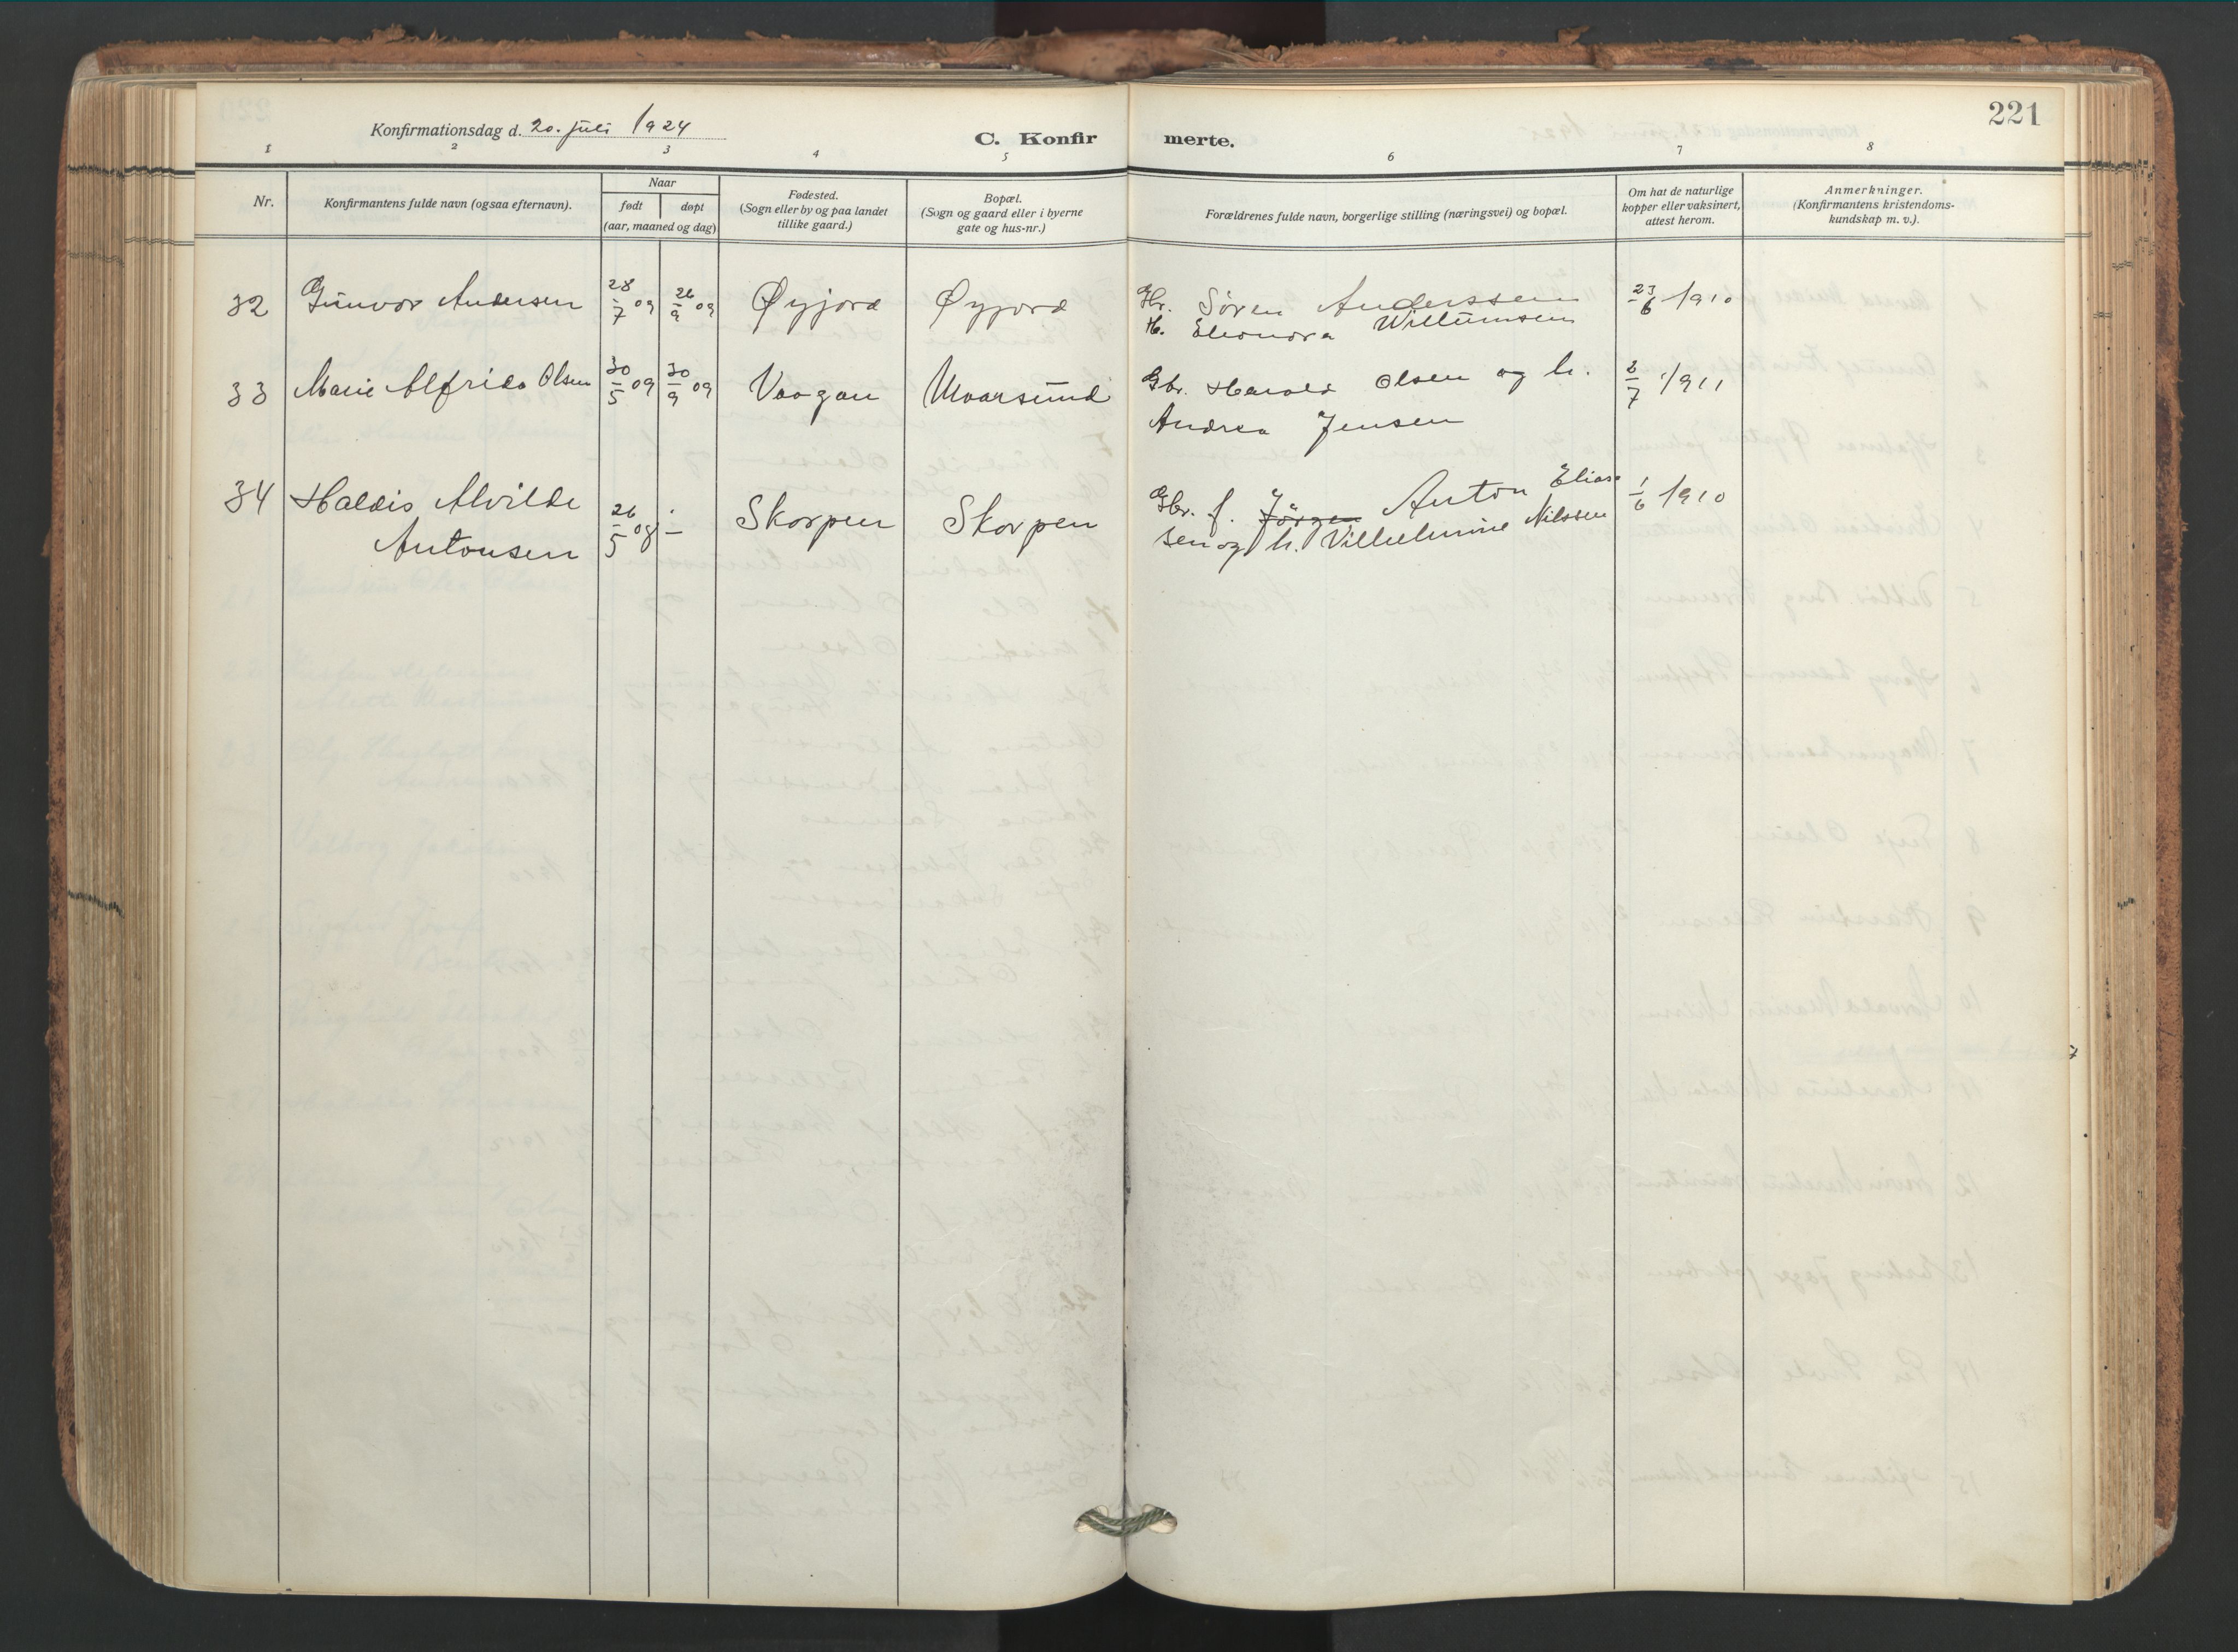 221
Konfirmationsdag d. 20. juli 1924
C. Konfirmerte.
1 2 3 4 5 6 7 8
Nr.
Konfirmantens fulde navn (ogsaa efternavn).
Naar
født
døpt
(aar, maaned og dag)
Fødested.
(Sogn eller by og paa landet
tillike gaard.)
Bopæl.
(Sogn og gaard eller i byerne
gate og hus-nr.)
Forældrenes fulde navn, borgerlige stilling (næringsvei) og bopæl.
Om hat de naturlige
kopper eller vaksinert,
attest herom.
Anmerkninger.
(Konfirmantens kristendoms-
kundskap m. v.).
32 Gunvor Andersen 28/7 09 26/9 09 Øyjord Øyjord Gbr. Søren Anderssen 23/6 1910
H. Eleonora Willumsen
33 Marie Alfrida Olsen 30/5 09 30/9 09 Vaagan Maarsund Gbr. Harald Olsen og h. 2/7 1911
Andrea Jensen
34 Haldis Alvilde 26/5 08 - Skorpen Skorpen Gbr. f. Jörgen Anton Elias 1/6 1910
Antonsen sen og h. Vilhelmine Nilssen